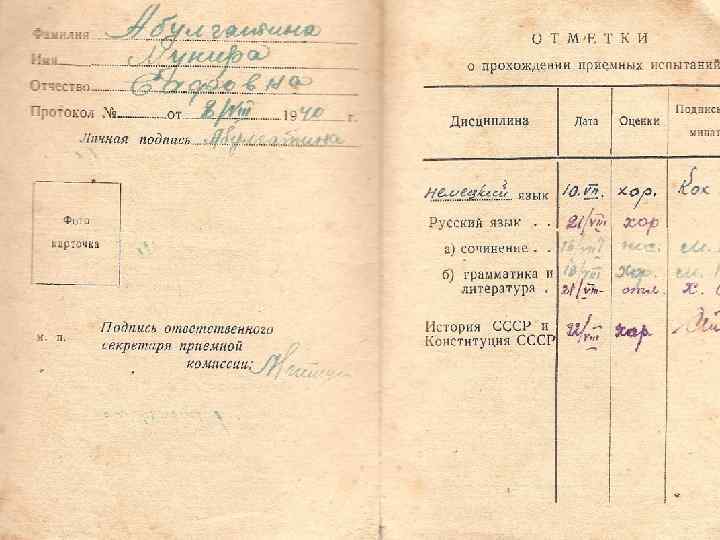 Фамилия Абулгатина
Имя Мунира
Отчество
Протокол № от 8/VIII 1940 г.
Личная подпись Абулгатина
Фото
карточка
м. п.
Подпись ответственного
секретаря приемной
комиссии:
ОТМЕТКИ
о прохождении приемных испытаний
Дисциплина Дата Оценки Подпись
Немецкий язык 10.VIII. хор. Кох
Русский язык . . 21/VIII хор
а) сочинение . . см.
б) грамматика и хор. см.
литература . 21/VIII отл. х.
История СССР и 22/VIII хор
Конституция СССР